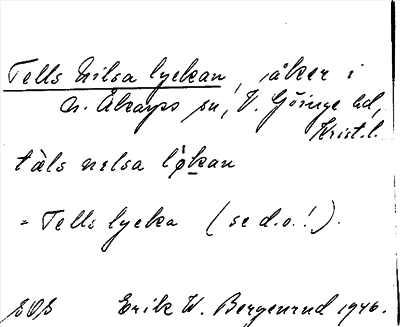 Tells Nilsa lyckan, åker i
N. Åkarps sn, V. Göinge hd,
Krist. l.
tàls nılsa lø̀kan
= Tells lycka (se d.o.!).
SOS Erik W. Bergenrud 1946.